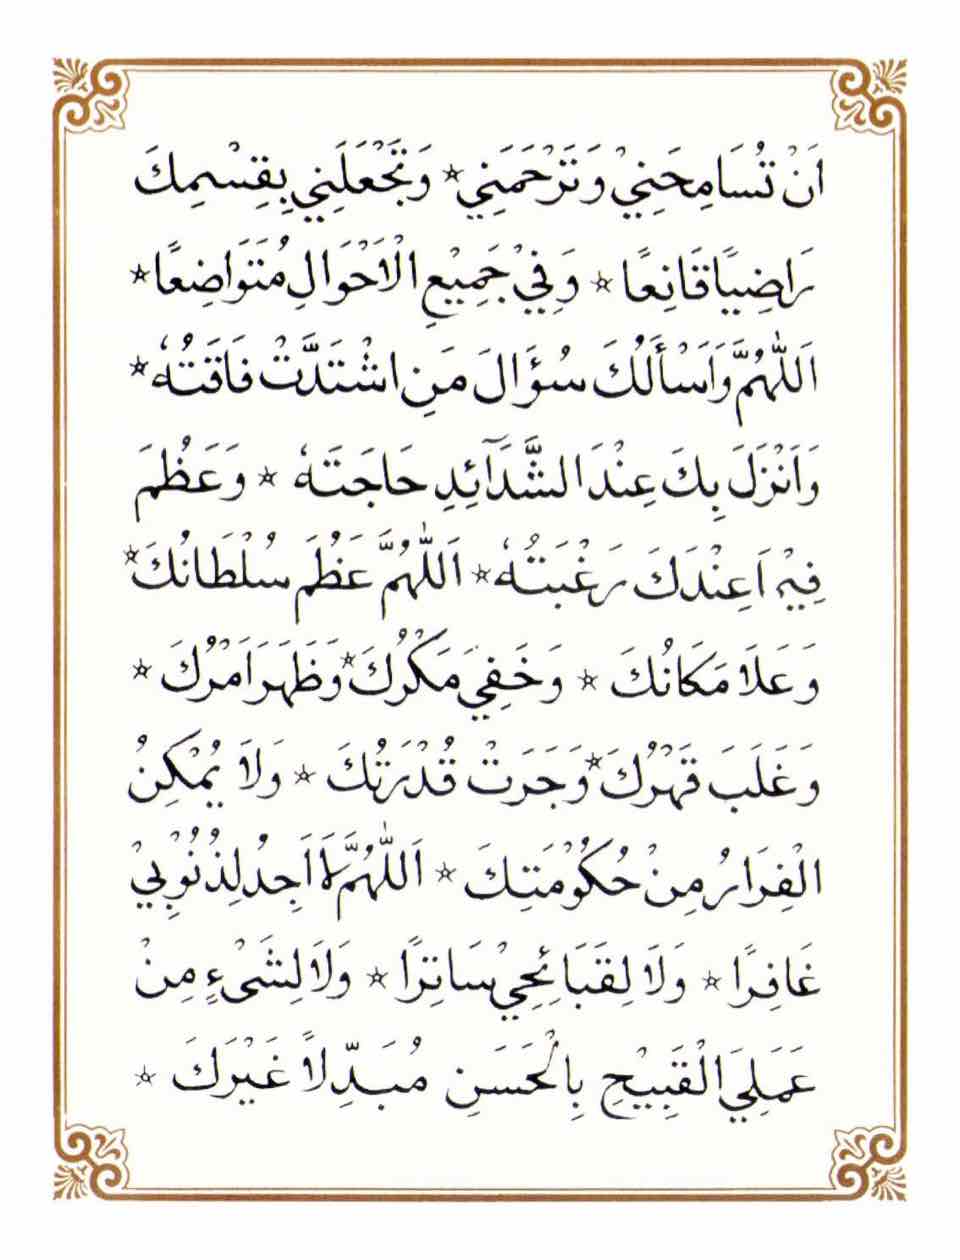 اَنْ تُسَامِحَنِيْ وَتَرْحَمَنِي ☆ وَتَجْعَلَنِي بِقِسْمِكَ
رَاضِيًا قَانِعًا ☆ وَفِيْ جَمِيْعِ الْاَحْوَالِ مُتَوَاضِعًا ☆
اَللّٰهُمَّ وَاَسْأَلُكَ سُؤَالَ مَنِ اشْتَدَّتْ فَاقَتُهٗ ☆
وَاَنْزَلَ بِكَ عِنْدَ الشَّدَآئِدِ حَاجَتَهٗ ☆ وَعَظُمَ
فِيْمَا عِنْدَكَ رَغْبَتُهٗ ☆ اَللّٰهُمَّ عَظُمَ سُلْطَانُكَ ☆
وَعَلَا مَكَانُكَ ☆ وَخَفِيَ مَكْرُكَ ☆ وَظَهَرَ اَمْرُكَ ☆
وَغَلَبَ قَهْرُكَ ☆ وَجَرَتْ قُدْرَتُكَ ☆ وَلَا يُمْكِنُ
الْفِرَارُ مِنْ حُكُوْمَتِكَ ☆ اَللّٰهُمَّ لَا اَجِدُ لِذُنُوْبِيْ
غَافِرًا ☆ وَلَا لِقَبَائِحِيْ سَاتِرًا ☆ وَلَا لِشَىْءٍ مِنْ
عَمَلِيَ الْقَبِيْحِ بِالْحَسَنِ مُبَدِّلًا غَيْرَكَ ☆